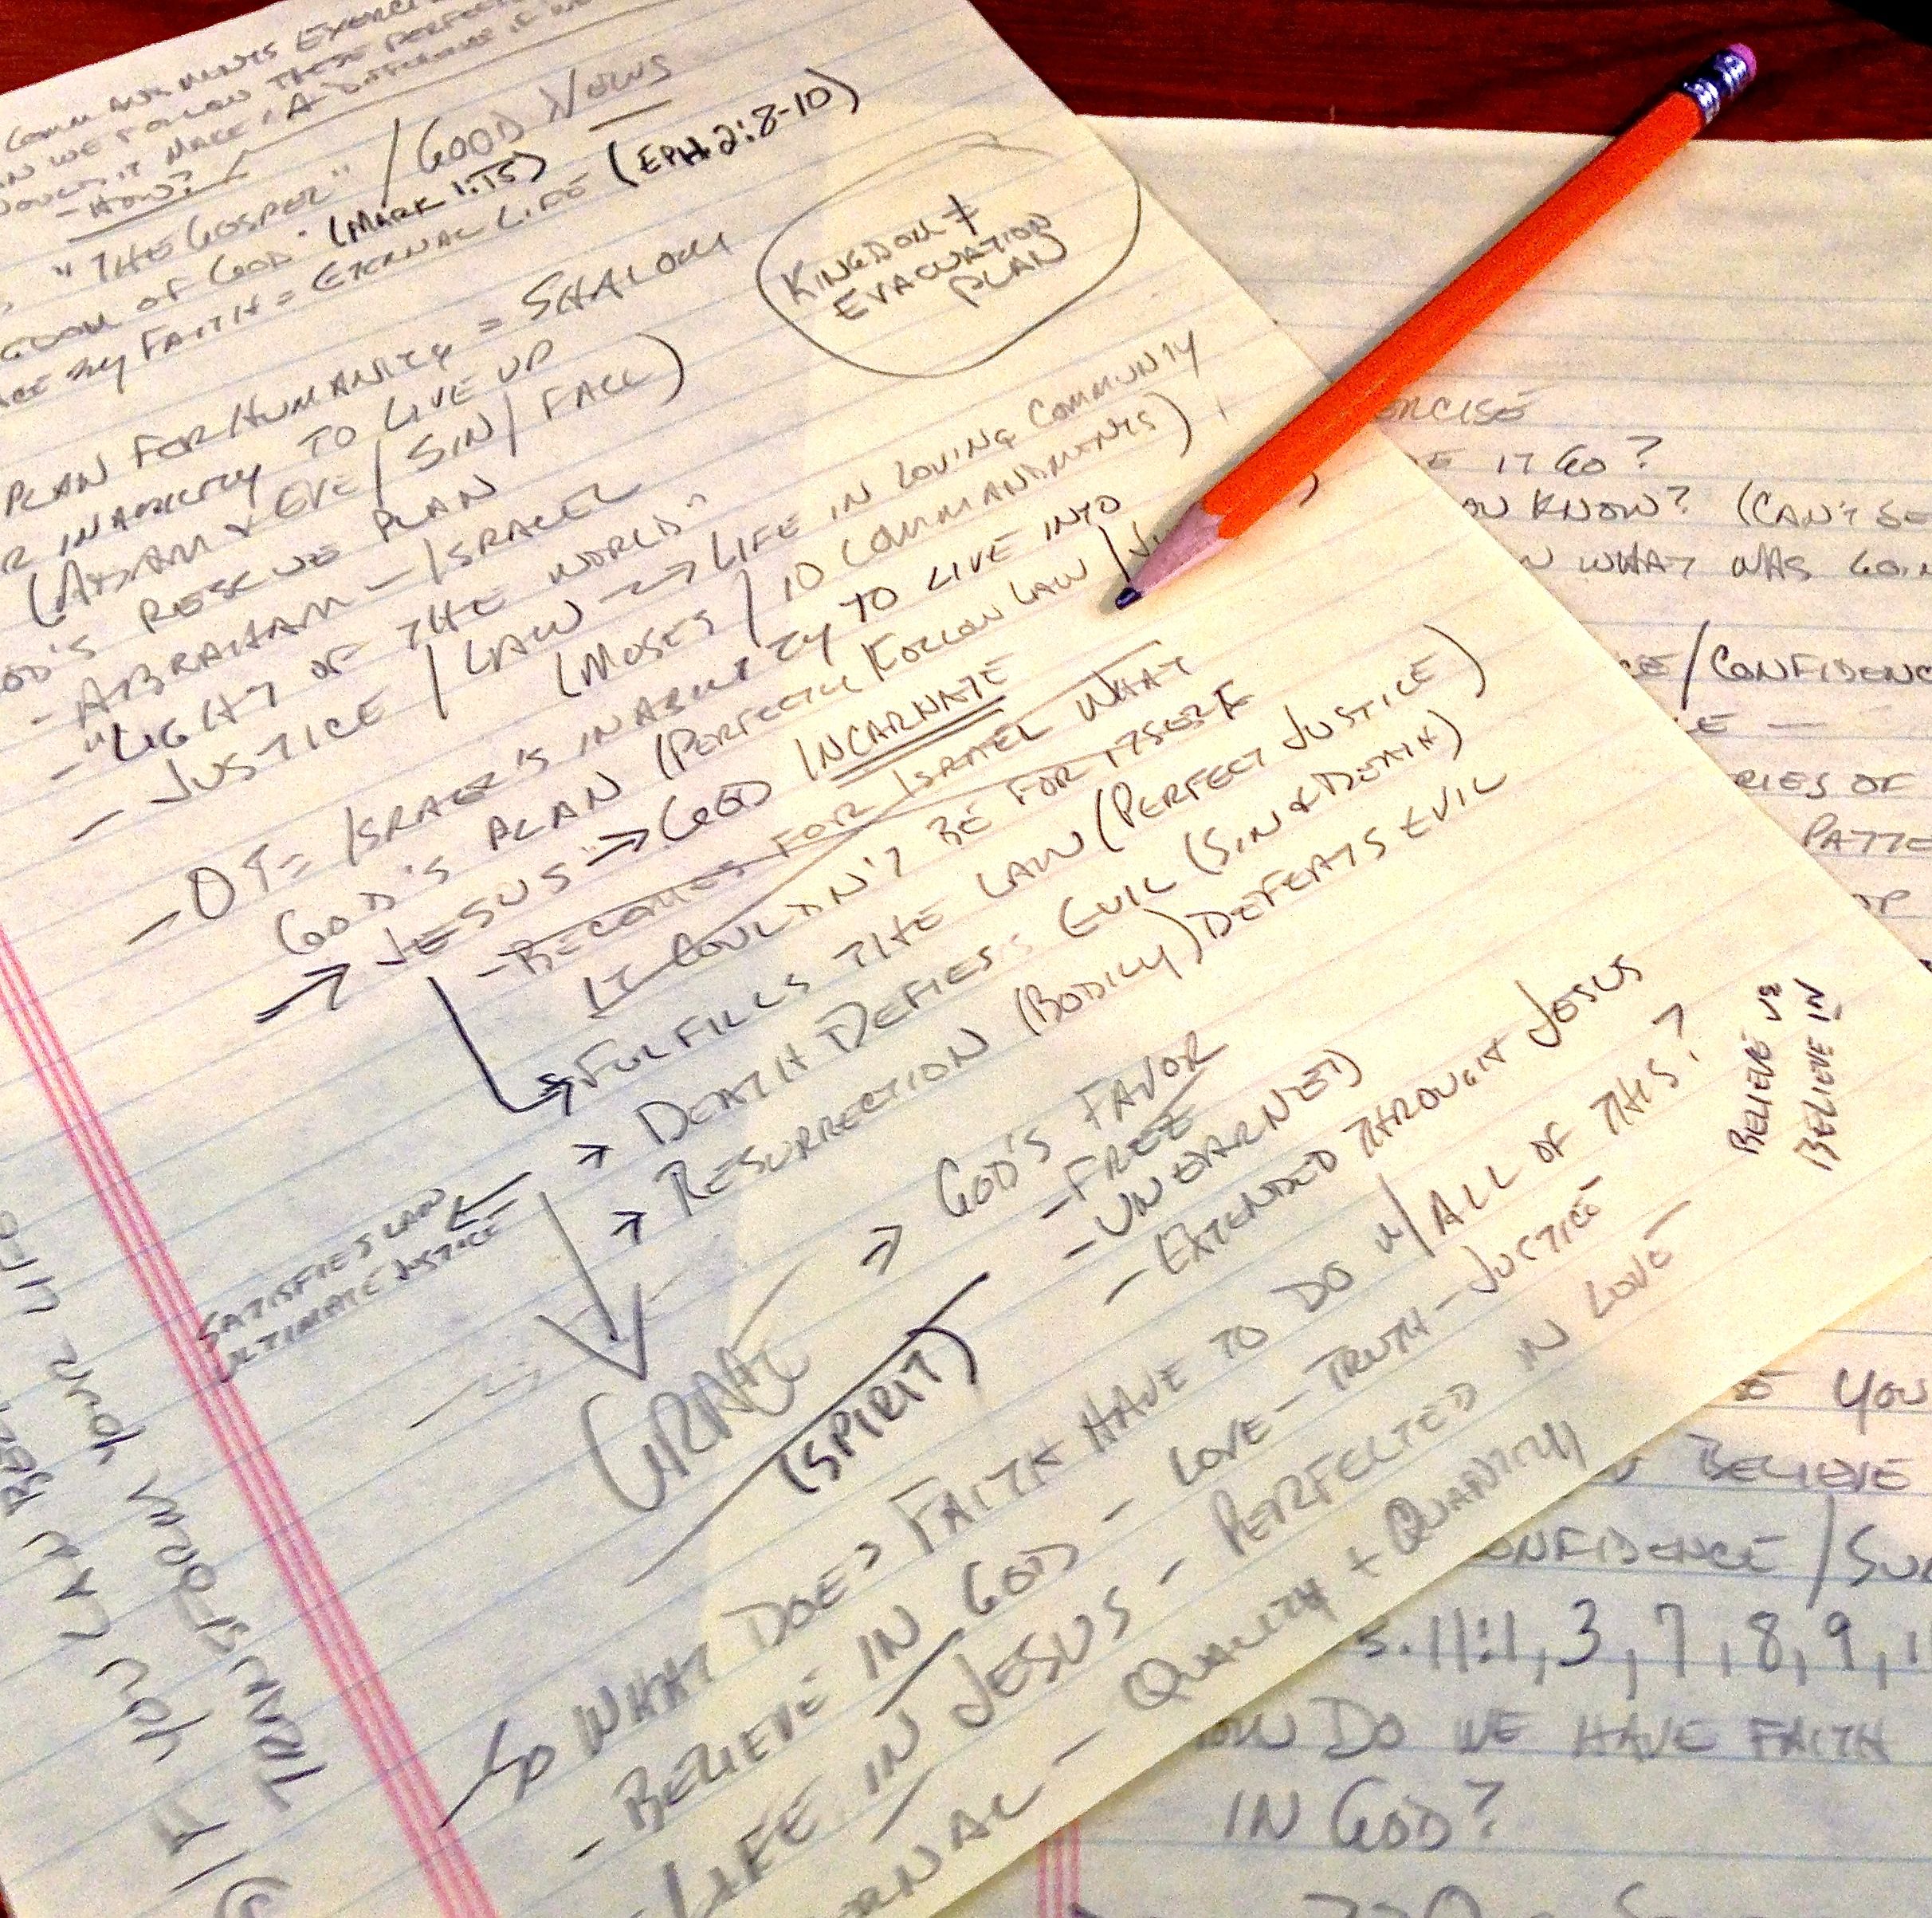 COMMANDMENTS EXERCI
WE FOLLOW THESE PERFEC
IT MAKE A DIFFERENCE IF WE
- HOW?
"THE GOSPEL" / GOOD NEWS
GDOM OF GOD. (MARK 1:15)
BY FAITH = ETERNAL LIFE (EPH. 2:8-10)
KINGDOM ≠
EVACUATION
PLAN
PLAN FOR HUMANITY = SHALOM
R INABILITY TO LIVE UP
(ADAM & EVE / SIN / FALL)
OD'S RESCUE PLAN
- ABRAHAM - ISRAEL
- "LIGHT OF THE WORLD"
- JUSTICE / LAW → LIFE IN LOVING COMMUNITY
(MOSES / 10 COMMANDMENTS)
- OT = ISRAEL'S INABILITY TO LIVE INTO
GOD'S PLAN (PERFECTLY FOLLOW LAW / J
→ JESUS → GOD INCARNATE
- BECOMES FOR ISRAEL WHAT
IT COULDN'T BE FOR ITSELF
→ FULFILLS THE LAW (PERFECT JUSTICE)
→ DEATH DEFIES EVIL (SIN & DEATH)
→ RESURRECTION (BODILY) DEFEATS EVIL
SATISFIES LAW
ULTIMATE JUSTICE
GRACE → GOD'S FAVOR
- FREE
- UNEARNED
- EXTENDED THROUGH JESUS
(SPIRIT)
SO WHAT DOES FAITH HAVE TO DO W/ ALL OF THIS?
- BELIEVE IN GOD - LOVE - TRUTH - JUSTICE
- LIFE IN JESUS - PERFECTED IN LOVE -
RNAL - QUALITY + QUANTITY
BELIEVE VS
BELIEVE IN
YOU CAN
YOUR LIFE
ERCISE
E IT GO?
OU KNOW? (CAN'T SE
N WHAT WAS GOIN
CE/CONFIDENC
LE -
RIES OF
PATTE
OP
YOU
BELIEVE
ONFIDENCE / SU
S. 11:1, 3, 7, 8, 9, 1
OW DO WE HAVE FAITH
IN GOD?